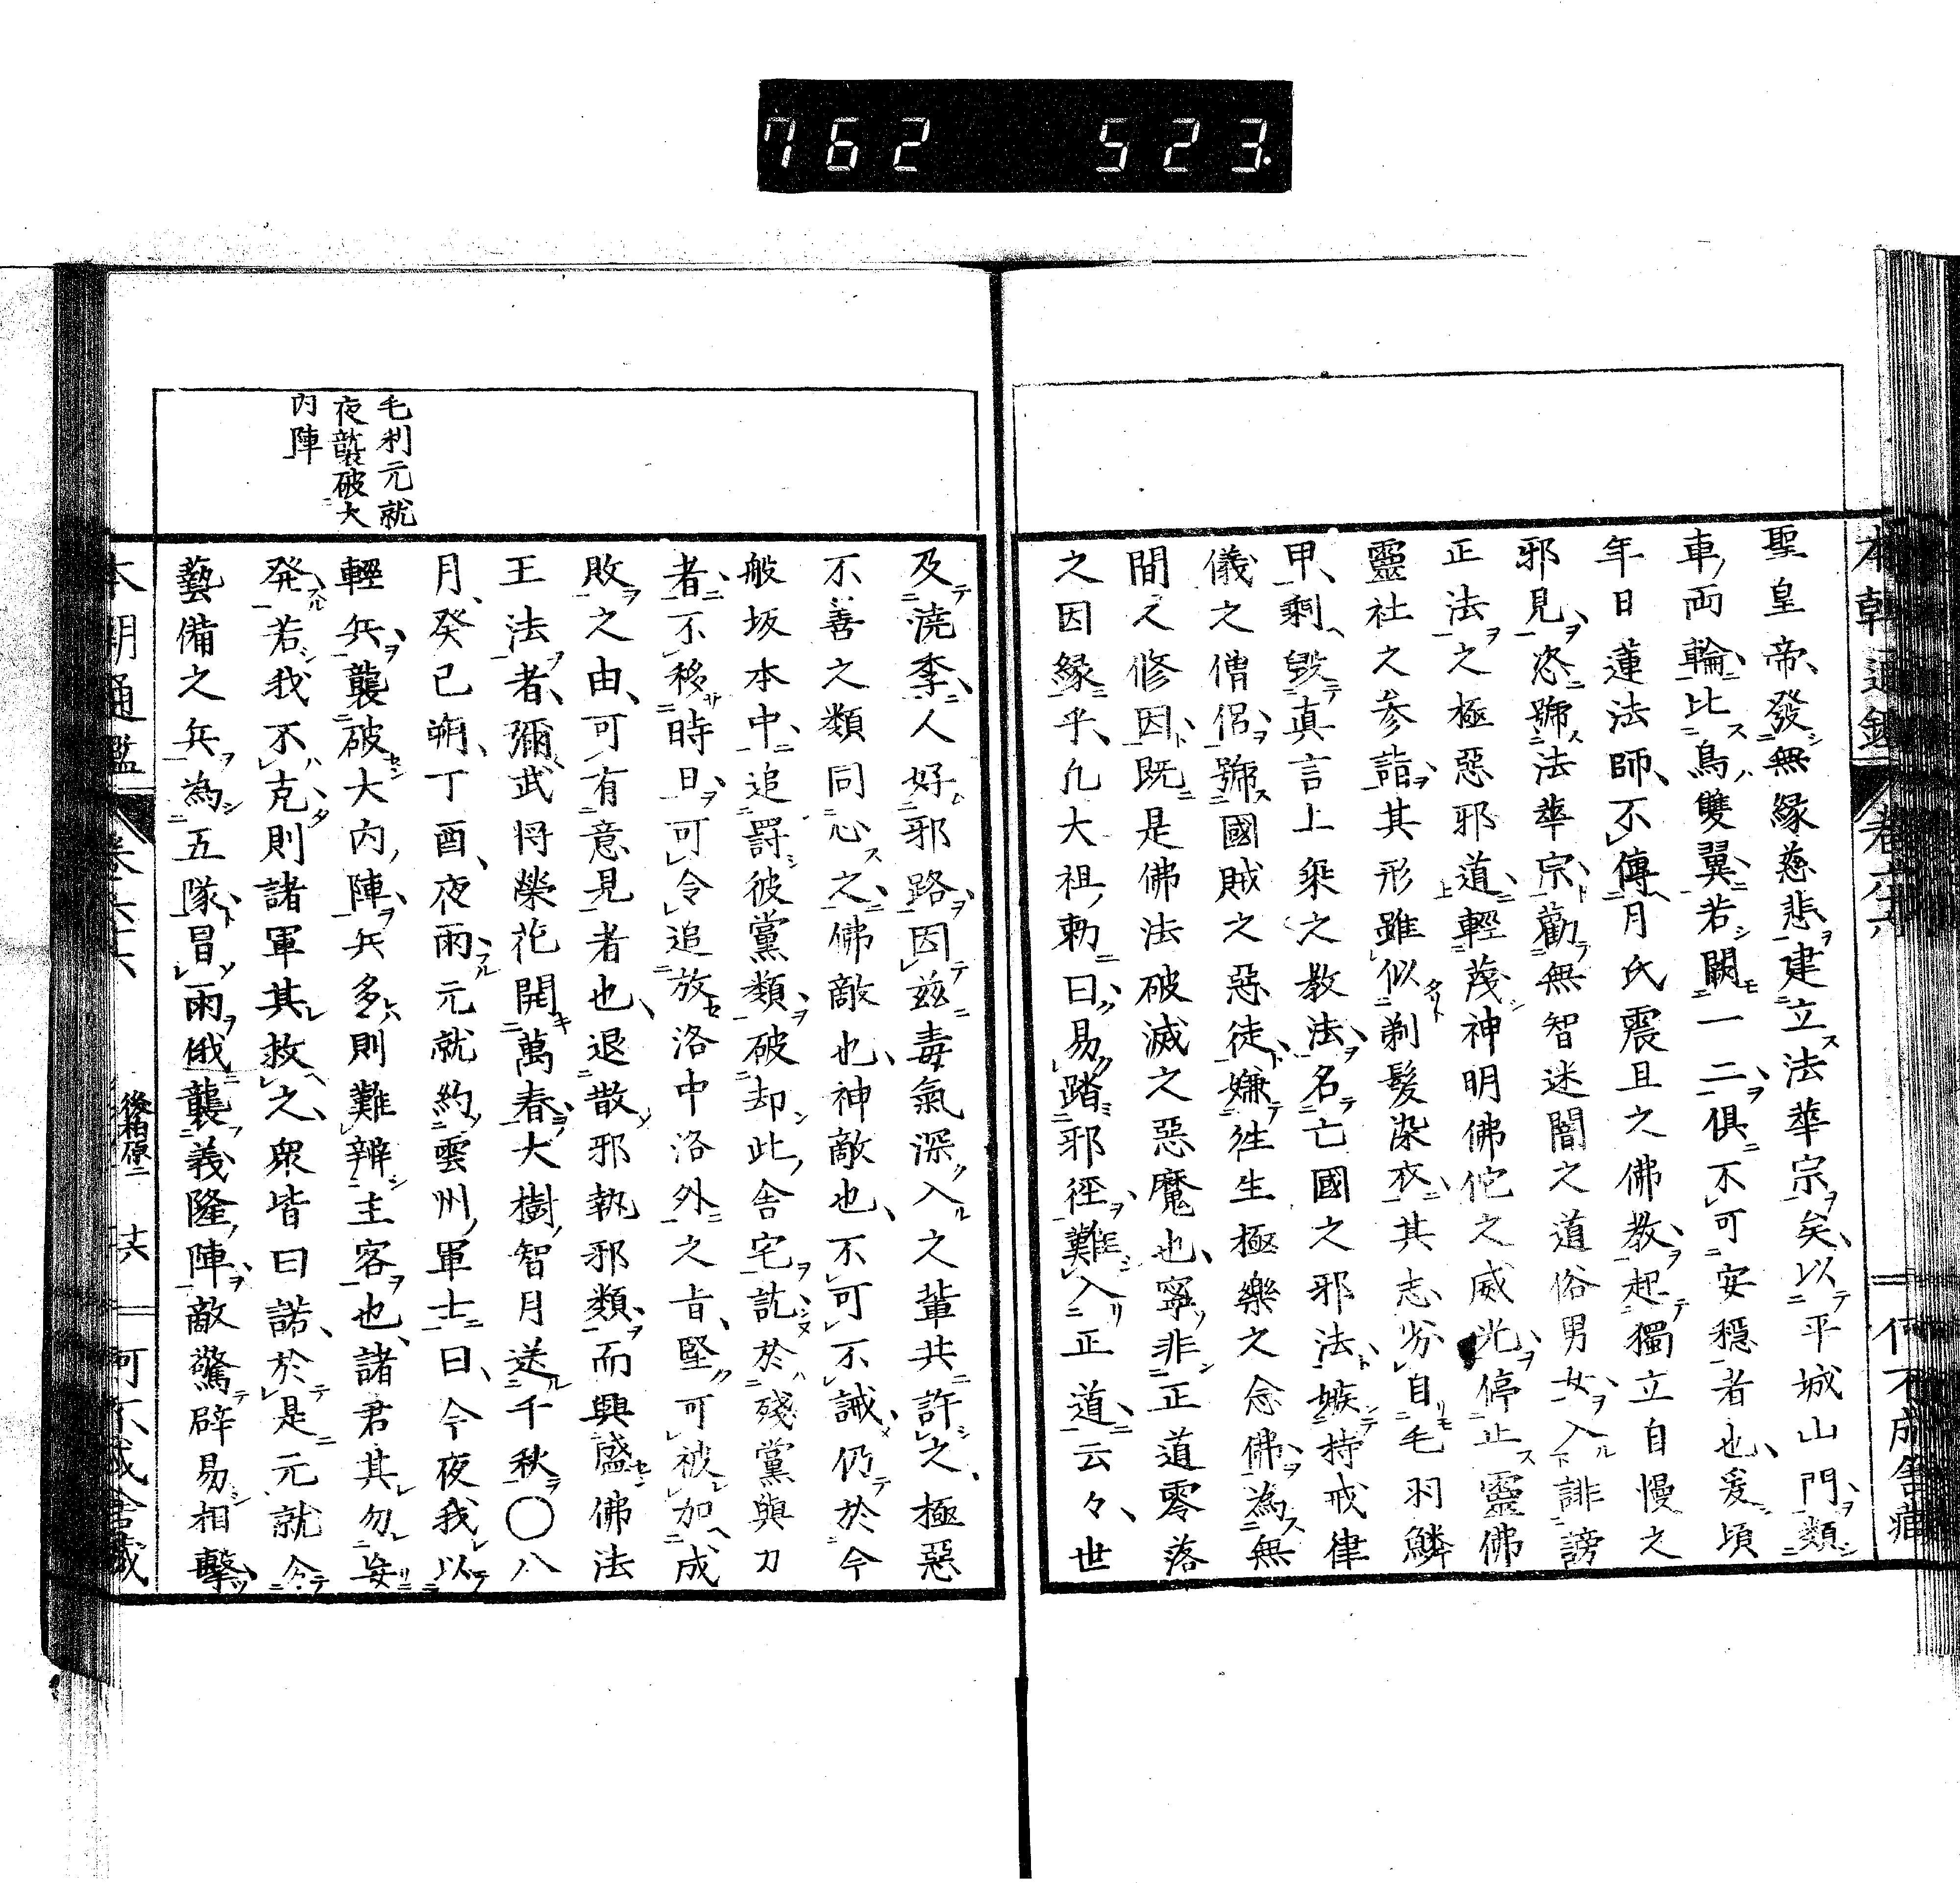 762 523.
本朝通鑑 卷六十六
聖皇帝發無縁慈悲建立法華宗矣以平城山門類
車両輪比鳥雙翼若闕一二俱不可安穩者也爰頃
年日蓮法師不傳月氏震且之佛教起獨立自慢之
邪見恣號法華宗勸無智迷闇之道俗男女入誹謗
正法之極惡邪道輕蔑神明佛佗之威光停止靈佛
靈社之参詣其形雖似剃髮染衣其志劣自毛羽鱗
甲剩毀真言上乘之教法名亡國之邪法嫉持戒律
儀之僧侶號國賊之惡徒嫌徃生極樂之念佛為無
間之修因既是佛法破滅之惡魔也寧非正道零落
之因縁乎凡大祖勅曰易踏邪徑難入正道云々世
毛利元就
夜襲破大
内陣
及澆季人好邪路因茲毒氣深入之輩共許之極惡
不善之類同心之佛敵也神敵也不可不誡仍於今
般坂本中追罸彼黨類破却此舎宅訖於殘黨與力
者不移時日可令追放洛中洛外之旨堅可被加成
敗之由可有意見者也退散邪執邪類而興盛佛法
王法者彌武将榮花開萬春大樹智月送千秋〇八
月癸已朔丁酉夜雨元就約雲州軍士曰今夜我以
輕兵襲破大内陣兵多則難辨主客也諸君其勿妄
発若我不克則諸軍其救之衆皆曰諾於是元就令
藝備之兵為五隊冒雨俄襲義隆陣敵驚辟易相擊
本朝通鑑 卷六十六 後柏原二 十六